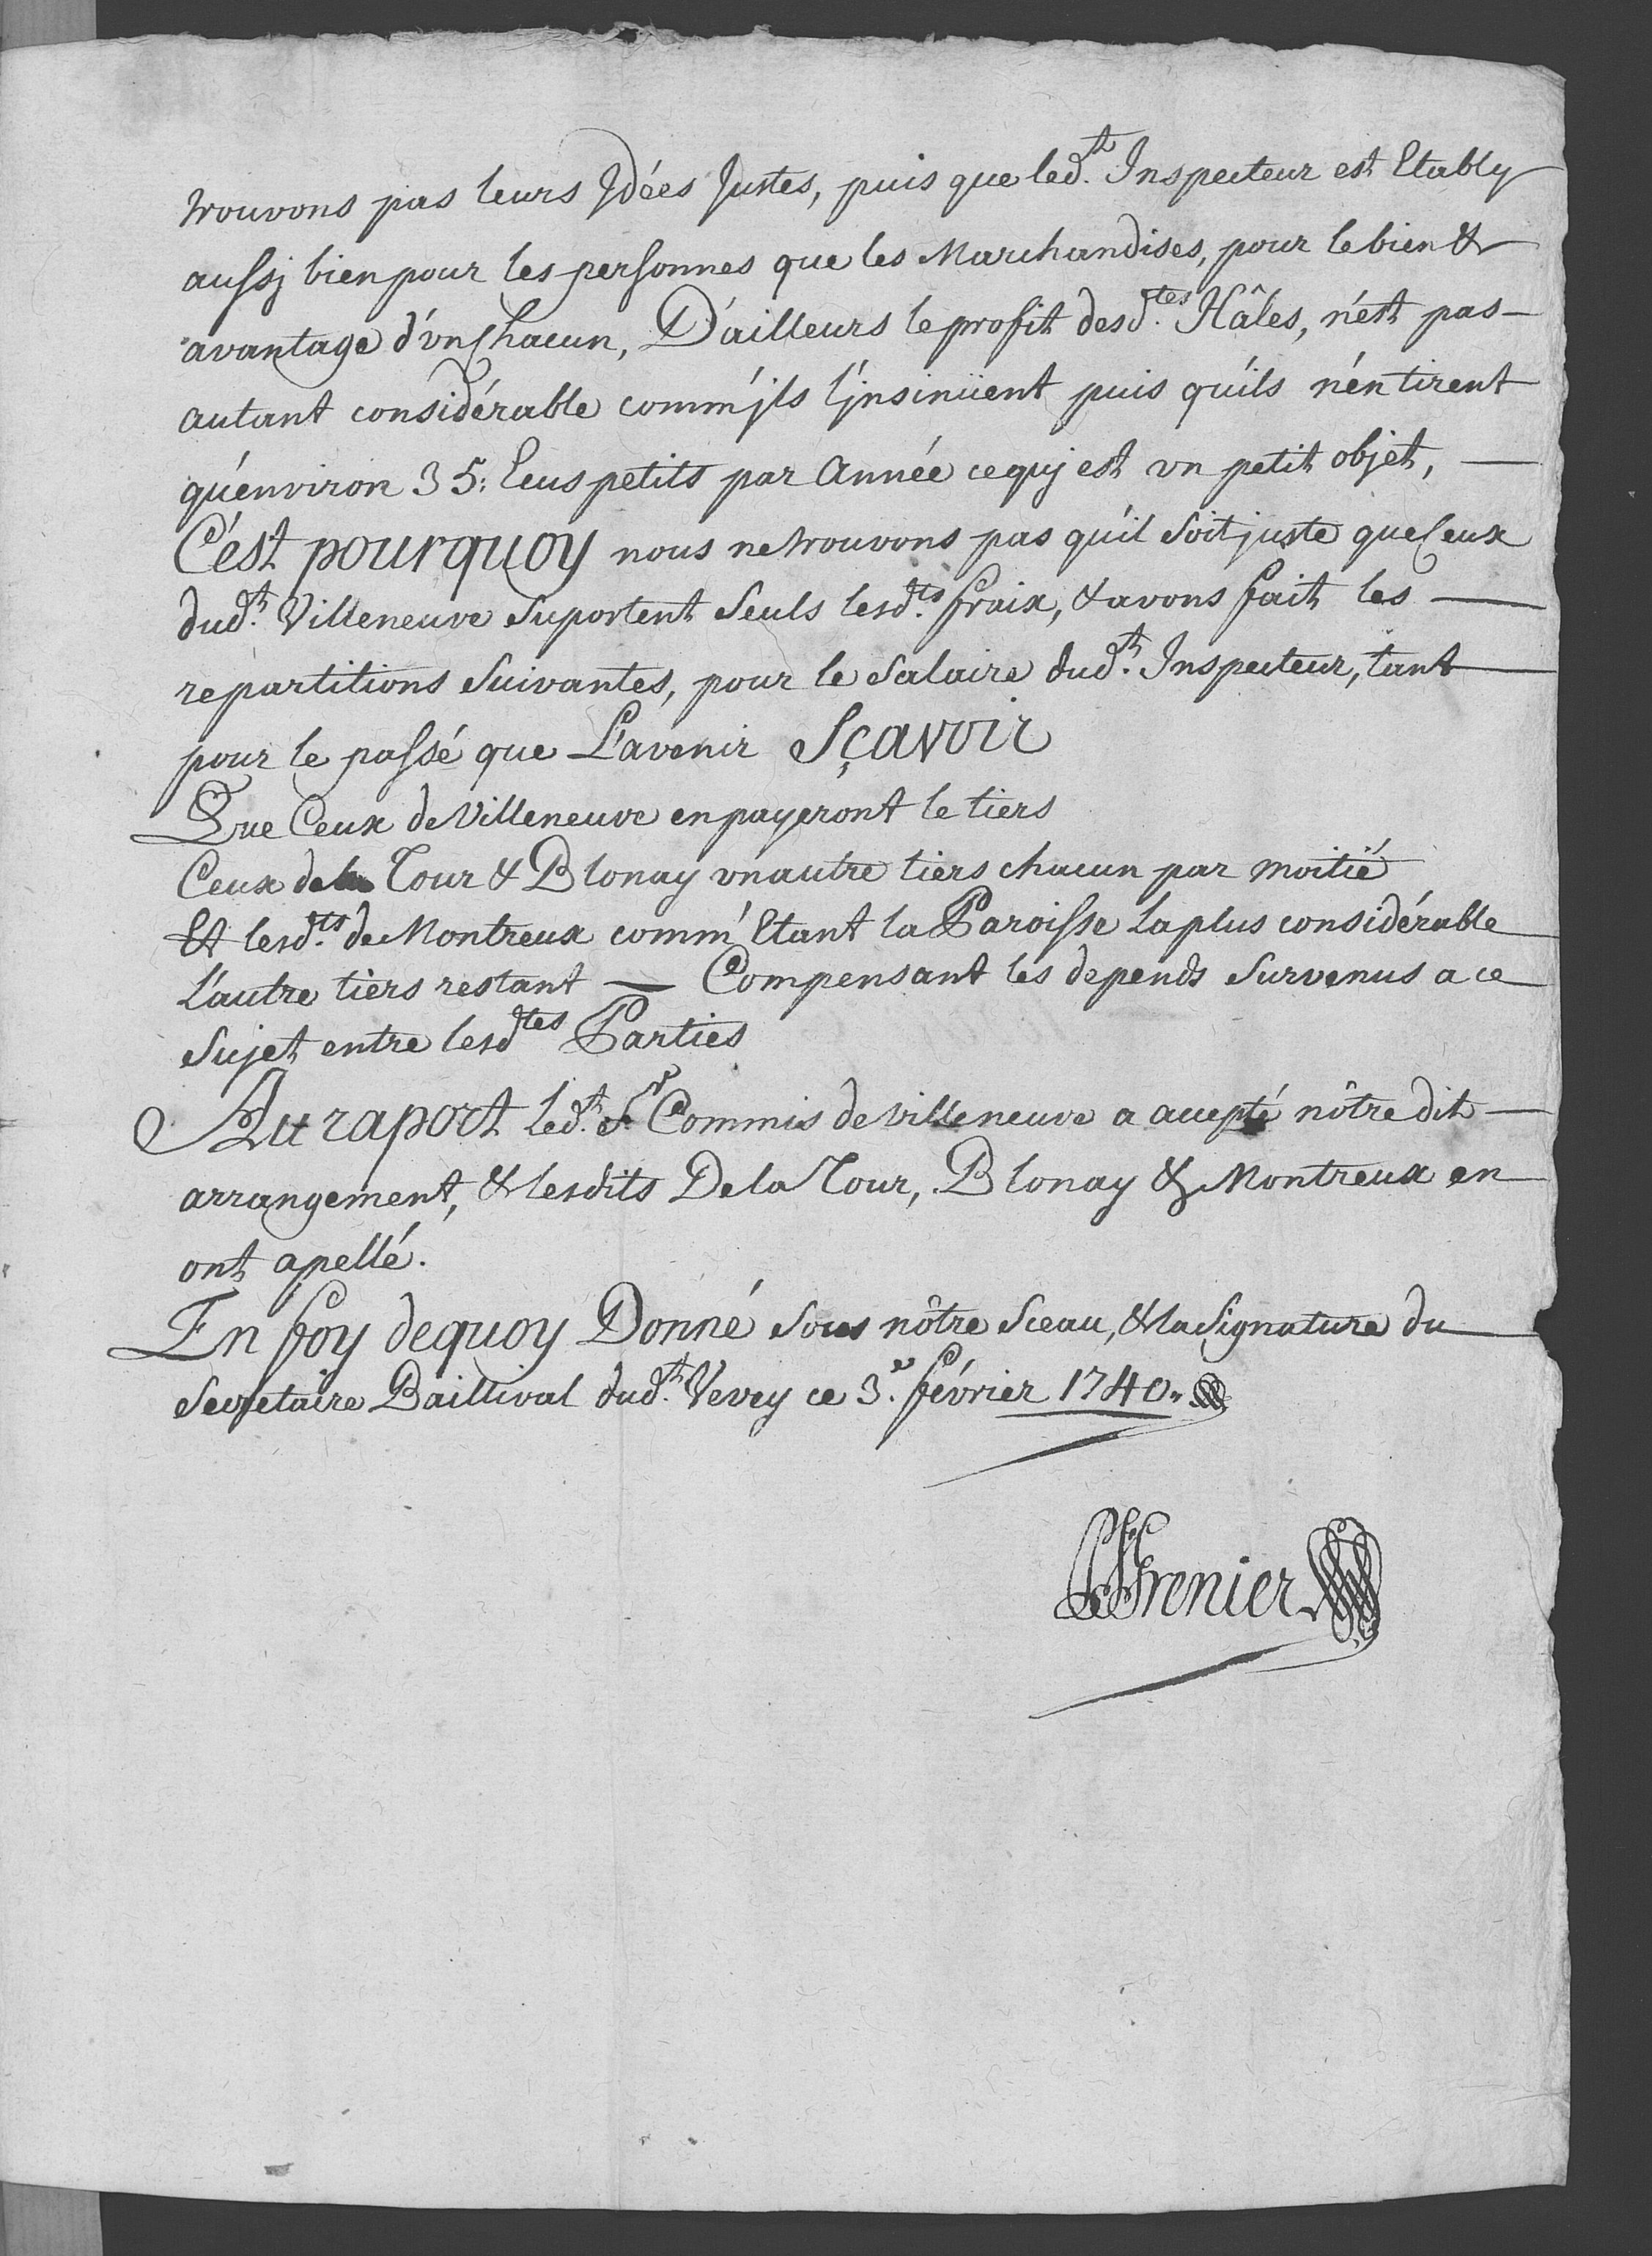 trouvons pas leurs Jdées Justes, puis que led.t Inspecteur est Etably
aussj bien pour les personnes que les Marchandises, pour le bien &
avantage d'vn Chacun, D'ailleurs le profit desd.tes Hâles, n'est pas
autant considérable comm'jls l'jnsinüent puis qu'ils n'én tirent
qu'environ 35: Ecus petits par Année ce quj est vn petit objet,
C'est pourquoy nous ne trouvons pas qu'il soit juste que Ceux
dud.t Villeneuve suportent seuls lesd.ts fraix, & avons fait les
repartitions suivantes, pour le salaire dud.t Inspecteur, tant
pour le passé que L'avenir Sçavoir
Que Ceux de Villeneuve en payeront le tiers
Ceux de la Tour & Blonay vn autre tiers chacun par moitié
Et lesd.ts de Montreux comm' Etant la Paroisse La plus considérable
L'autre tiers restant — Compensant les depends survenus a ce
sujet entre lesd.tes Parties
Au raport led.t S.r Commis de Villeneuve a accepté nôtre dit
arrangement, & lesdits De la Tour, Blonay & Montreux en
ont apellé.
En foy dequoy Donné sous nôtre Sceau, & la Signature du
Secretaire Baillival dud.t Vevey ce 3.e février 1740.
Grenier